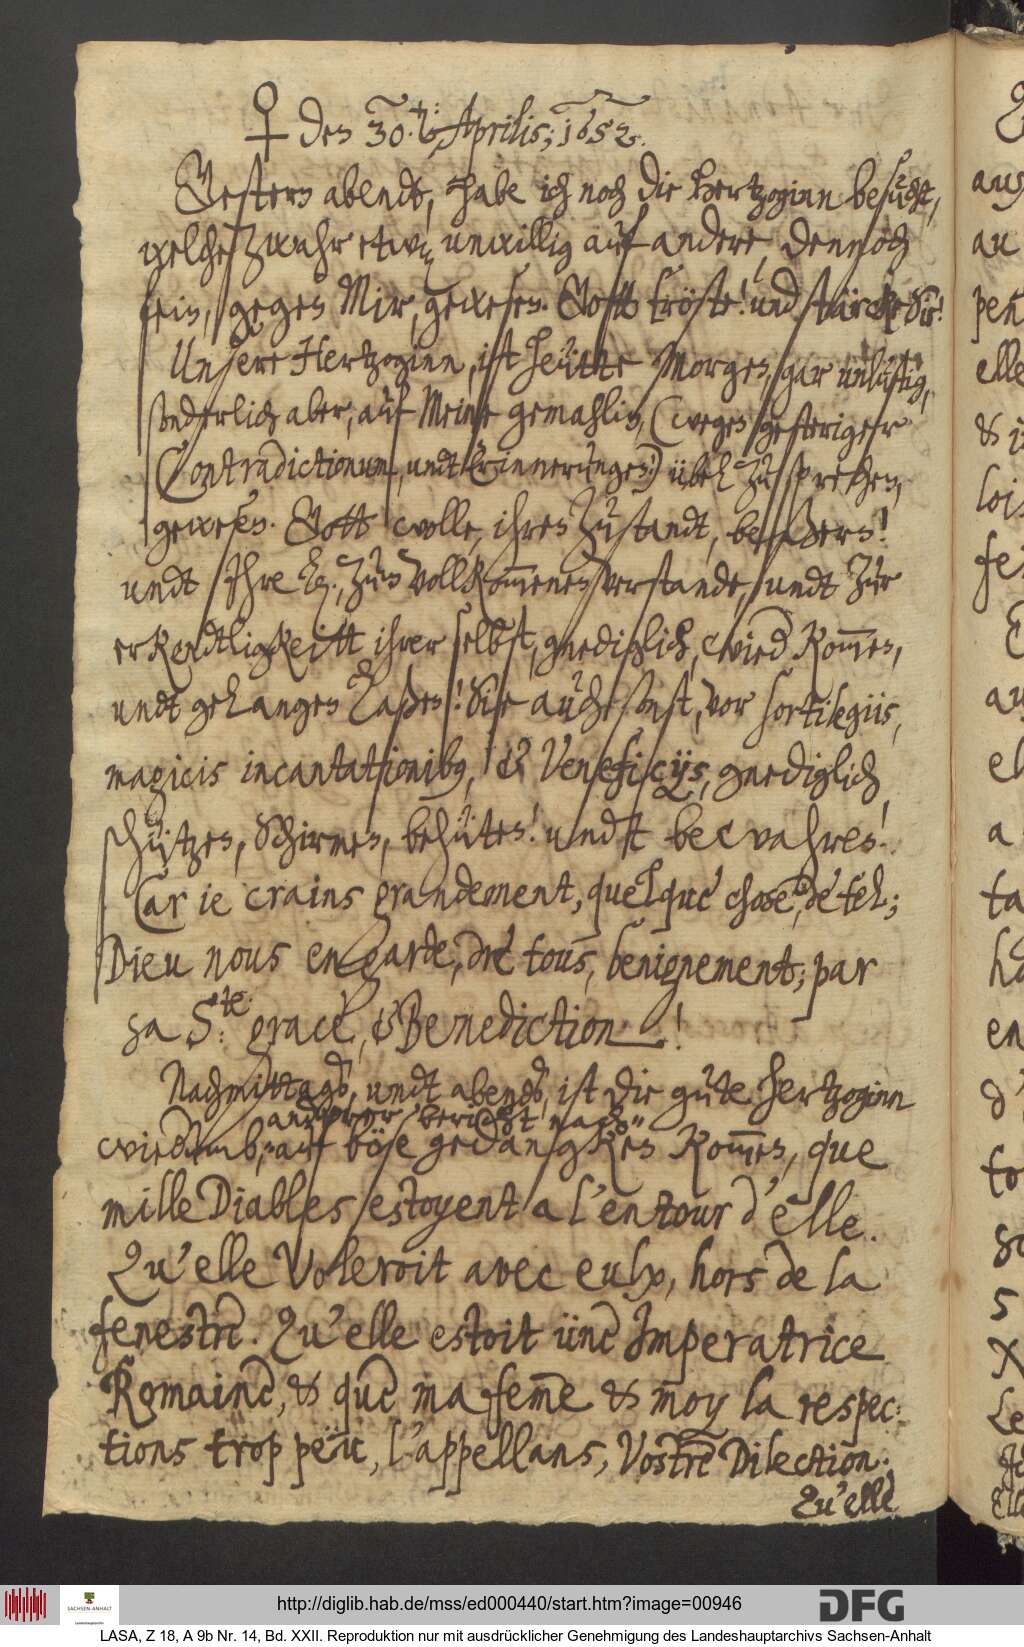 ♀ den 30.t: Aprilis; 1652.
Gestern abendt, habe ich noch die Hertzoginn besucht,
welche zwahr etwz unwillig auf andere, dennoch
fein, gegen Mir, gewesen. Gott tröste! und stärcke Sie!
Unsere Hertzoginn, ist heütte Morgen, gar unlustig,
sonderlich aber, auf Meine gemahlin, (wegen gesteriger
Contradictionum, undt Erinnerungen) übel zu sprechen,
gewesen. Gott wolle, ihren Zustandt, beßern!
undt Ihre Lz., zum vollkom̅enen verstande, undt zur
erkendtligkeitt ihrer selbst, gnediglich, wied kom̅en,
undt gelangen laßen! Sie auch sonst, vor sortilegiis,
magicis incantationib9, & Veneficijs, gnediglich,
schützen, Schirmen, behüten! undt bewahren!
Car ie crains grandement, quelque chose, de tel;
Dieu nous en garde, de tous, benignement; par
sa S:te: grace, & Benediction !
Nachmittags, undt abends, ist die gute Hertzoginn
anderer bericht nach"
wiedumb, "auf böse gedancken kom̅en, que
mille Diables estoyent a l'entour d'elle.
Qu'elle Voleroit avec eulx, hors de la
fenestre. Qu'elle estoit üne Imperatrice
Romaine, & que ma fem̅e & moy la respec:
tions trop peüc, l'appellans, Vostre Dilection.
Qu'elle
http://diglib.hab.de/mss/ed000440/start.htm?image=00946
SACHSEN-ANHALT
DFG
LASA, Z 18, A 9b Nr. 14, Bd. XXII. Reproduktion nur mit ausdrücklicher Genehmigung des Landeshauptarchivs Sachsen-Anhalt